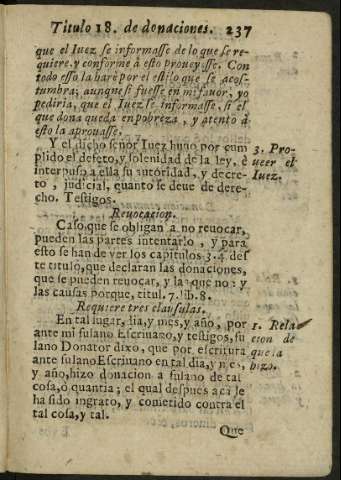 Titulo 18. de donaciones. 237
que el Iuez se informasse de lo que se re-
quiere, y conforme à esto proueyesse. Con
todo esso la harè por el estilo que se acos-
tumbra; aunque si fuesse en mi fauor, yo
pediria, que el Iuez se informasse, si el
que dona queda en pobreza, y atento à
esto la aprouasse.
Y el dicho señor Iuez huuo por cum
plido el defeto, y solenidad de la ley, è
interpuso à ella su autoridad, y decre-
to, judicial, quanto se deue de dere-
cho. Testigos.
3. Pro-
ueer el
Iuez.
Reuocacion.
Caso, que se obligan a no reuocar,
pueden las partes intentarlo, y para
esto se han de ver los capitulos 3. 4. des
te titulo, que declaran las donaciones,
que se pueden reuocar, y la que no: y
las causas porque, titul. 7. lib. 8.
Requiere tres clausulas.
En tal lugar, dia, y mes, y año, por
ante mi fulano Escriuano, y testigos, fu
lano Donator dixo, que por escritura
ante fulano Escriuano en tal dia, y mes,
y año, hizo donacion a fulano de tal
cosa, ò quantia; el qual despues acà le
ha sido ingrato, y cometido contra el
tal cosa, y tal.
1. Rela
cion de
que la
hizo.
Que